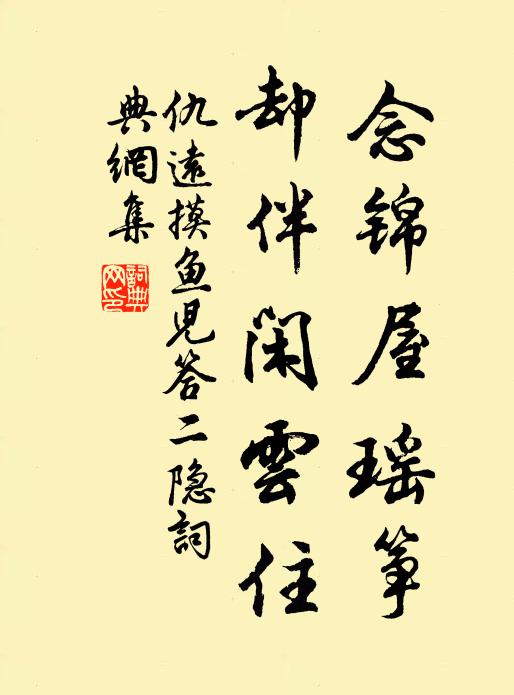 念锦屋瑶筝
却伴闲雲住
仇遠摸鱼児答二隐詞
典網集
詞典网印